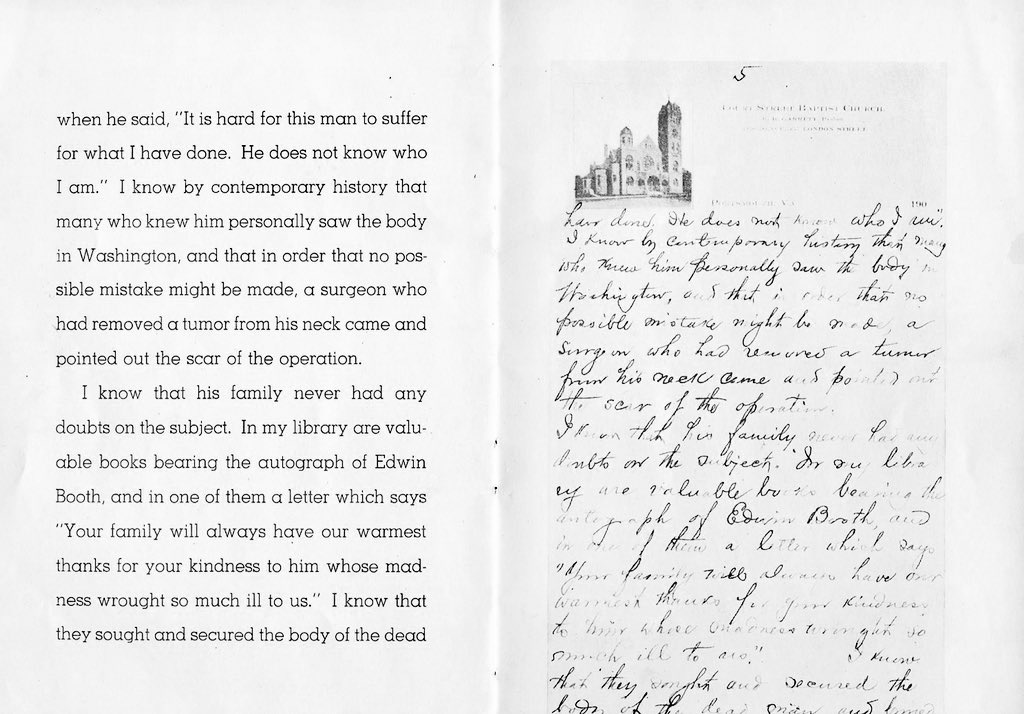 when he said, "It is hard for this man to suffer
for what I have done. He does not know who
I am." I know by contemporary history that
many who knew him personally saw the body
in Washington, and that in order that no pos-
sible mistake might be made, a surgeon who
had removed a tumor from his neck came and
pointed out the scar of the operation.
I know that his family never had any
doubts on the subject. In my library are valu-
able books bearing the autograph of Edwin
Booth, and in one of them a letter which says
"Your family will always have our warmest
thanks for your kindness to him whose mad-
ness wrought so much ill to us." I know that
they sought and secured the body of the dead
5
Court Street Baptist Church
London Street
Portsmouth, Va. 190
have done. He does not know who I am".
I know by contemporary history that many
who knew him personally saw the body in
Washington, and that in order that no
possible mistake might be made, a
surgeon who had removed a tumor
from his neck came and pointed out
the scar of the operation.
I know that his family never had any
doubts on the subject. In my libra
ry are valuable books bearing the
autograph of Edwin Booth, and
in one of them a letter which says
"Your family will always have our
warmest thanks for your kindness
to him whose madness wrought so
much ill to us." I know
that they sought and secured the
body of the dead man and